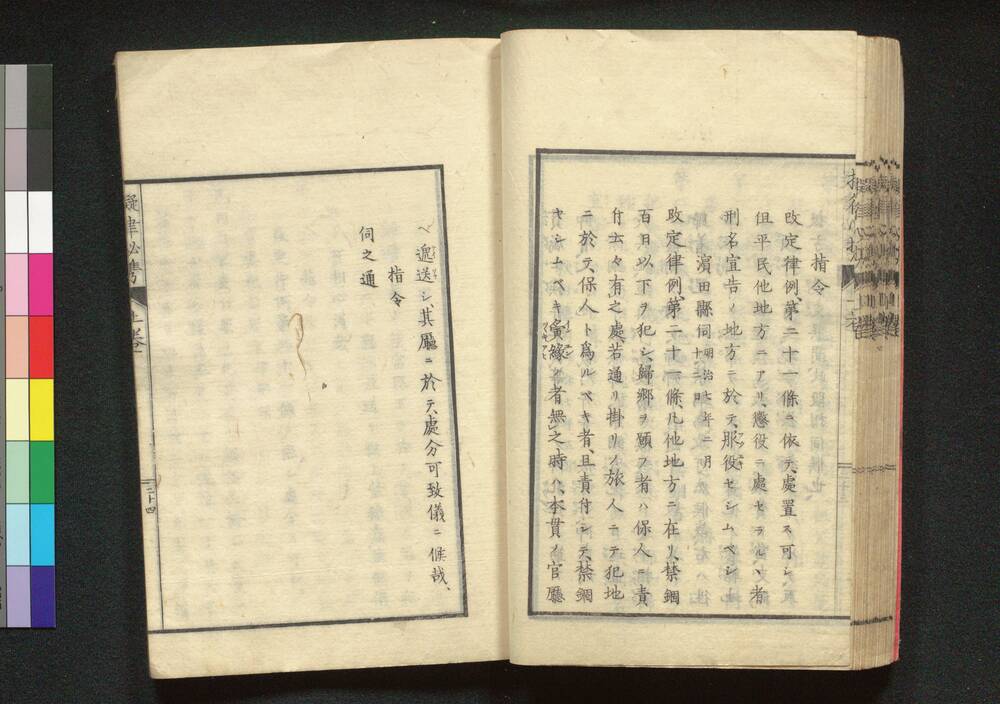 指令
改定律例、第二十一條ニ依テ、處置ス可シ、
但平民他地方ニアリ、懲役ニ處セラルヽ者
刑名宣告ノ地方ニ於テ、服役セシムベシ、
濱田縣伺 明治七年二月二十二日
改定律例、第二十一條、凡他地方ニ在リ、禁錮
百日以下ヲ犯シ、歸鄉ヲ願フ者ハ保人ニ責
付云々有之處、若通リ掛リノ旅人ニテ犯地
ニ於テ、保人ト爲ルベキ者、且責付シテ、禁錮
セシムベキ夤緣ノ者無之時ハ、本貫ノ官廳
ヘ遞送シ、其廳ニ於テ處分可致儀ニ候哉、
指令
伺之通
擬律必携
二十四